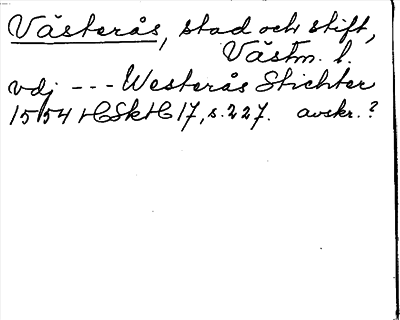 Västerås, stad och stift,
Västm. l.
vdj --- Westerås Stichter
1554 HSkH 17, s. 227. avskr.?